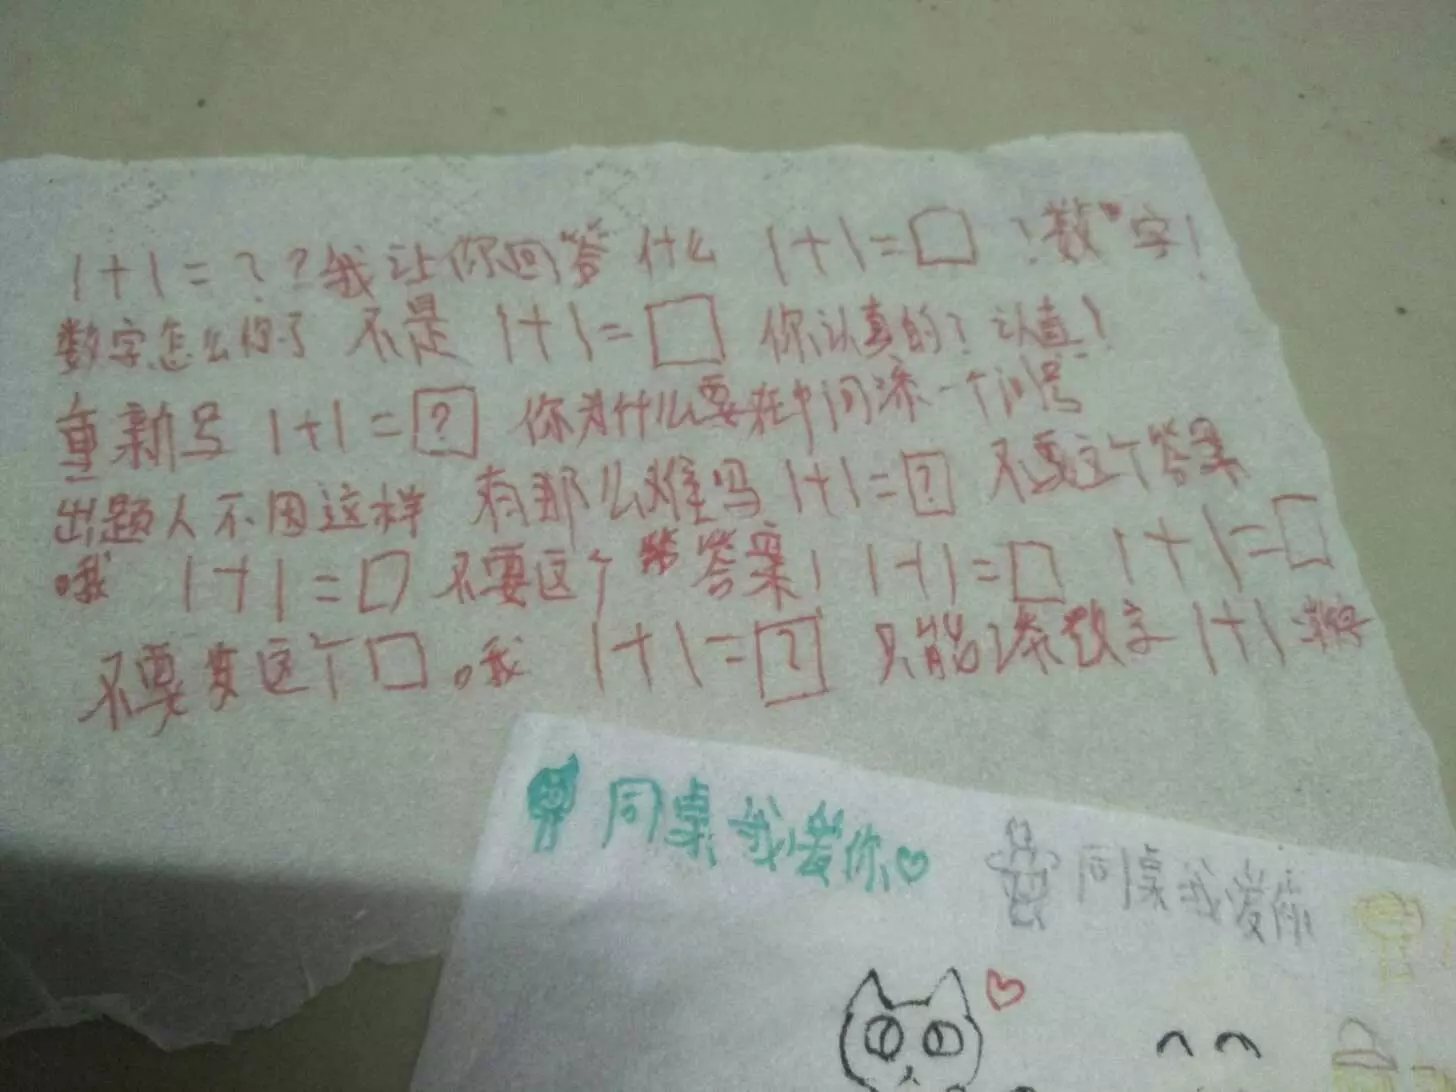 1+1=??我让你回答什么 1+1=□?数字!
数字怎么你了 不是 1+1=□ 你认真的?认真!
重新写 1+1=? 你为什么要在中间添一个问号
出题人不用这样 有那么难吗 1+1=? 不要这个答案
哦 1+1=□ 不要这个答案! 1+1=□ 1+1=□
不要这个□。哦 1+1=? 只能添数字 1+1
同桌我爱你♡
同桌我爱你